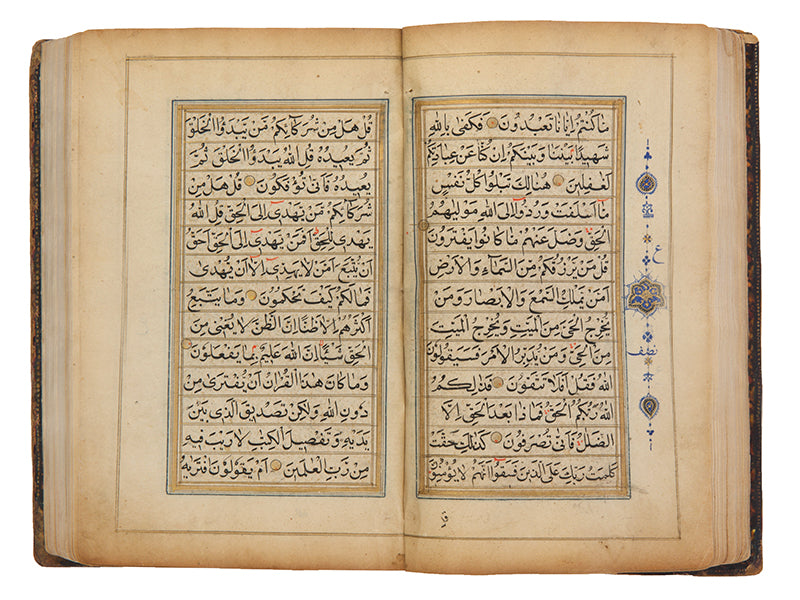 ما كُنْتُمْ اِيّانا تَعْبُدُونَ فَكَفى بِاللهِ
شَهيدًا بَيْنَنا وَبَيْنَكُمْ اِنْ كُنّا عَنْ عِبادَتِكُمْ
لَغافِلينَ هُنالِكَ تَبْلُوا كُلُّ نَفْسٍ
ما اَسْلَفَتْ وَرُدُّوا اِلَى اللهِ مَوْليهُمُ
الْحَقِّ وَضَلَّ عَنْهُمْ ما كانُوا يَفْتَرُونَ
قُلْ مَنْ يَرْزُقُكُمْ مِنَ السَّماءِ وَالْاَرْضِ
اَمَّنْ يَمْلِكُ السَّمْعَ وَالْاَبْصارَ وَمَنْ
يُخْرِجُ الْحَىَّ مِنَ الْمَيِّتِ وَيُخْرِجُ الْمَيِّتَ
مِنَ الْحَىِّ وَمَنْ يُدَبِّرُ الْاَمْرَ فَسَيَقُولُونَ
اللهُ فَقُلْ اَفَلا تَتَّقُونَ فَذلِكُمُ
اللهُ رَبُّكُمُ الْحَقُّ فَما ذا بَعْدَ الْحَقِّ اِلَّا
الضَّلالُ فَاَنّى تُصْرَفُونَ كَذلِكَ حَقَّتْ
كَلِمَتُ رَبِّكَ عَلَى الَّذينَ فَسَقُوا اَنَّهُمْ لا يُؤْمِنُونَ
ع
نصف
قل
قُلْ هَلْ مِنْ شُرَكائِكُمْ مَنْ يَبْدَؤُا الْخَلْقَ
ثُمَّ يُعيدُهُ قُلِ اللهُ يَبْدَؤُا الْخَلْقَ ثُمَّ
يُعيدُهُ فَاَنّى تُؤْفَكُونَ قُلْ هَلْ مِنْ
شُرَكائِكُمْ مَنْ يَهْدى اِلَى الْحَقِّ قُلِ اللهُ
يَهْدى لِلْحَقِّ اَفَمَنْ يَهْدى اِلَى الْحَقِّ اَحَقُّ
اَنْ يُتَّبَعَ اَمَّنْ لا يَهِدّى اِلّا اَنْ يُهْدى
فَمالَكُمْ كَيْفَ تَحْكُمُونَ وَما يَتَّبِعُ
اَكْثَرُهُمْ اِلّا ظَنًّا اِنَّ الظَّنَّ لا يُغْنى مِنَ
الْحَقِّ شَيْئًا اِنَّ اللهَ عَليمٌ بِما يَفْعَلُونَ
وَما كانَ هذَا الْقُرْانُ اَنْ يُفْتَرى مِنْ
دُونِ اللهِ وَلكِنْ تَصْديقَ الَّذى بَيْنَ
يَدَيْهِ وَتَفْصيلَ الْكِتبِ لا رَيْبَ فيهِ
مِنْ رَبِّ الْعلَمينَ اَمْ يَقُولُونَ افْتَريهُ